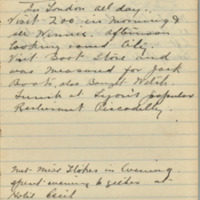 In London all day.
Visit Zoo in Morning &
see Winnie. afternoon
looking round City.
Visit Boot Store and
was measured for Jack
Boots, also Bought Watch
Lunch at Lyon's popular
Restaurant Piccadilly.
Met Miss Stokes in Evening
spent evening together at
Hotel Cecil